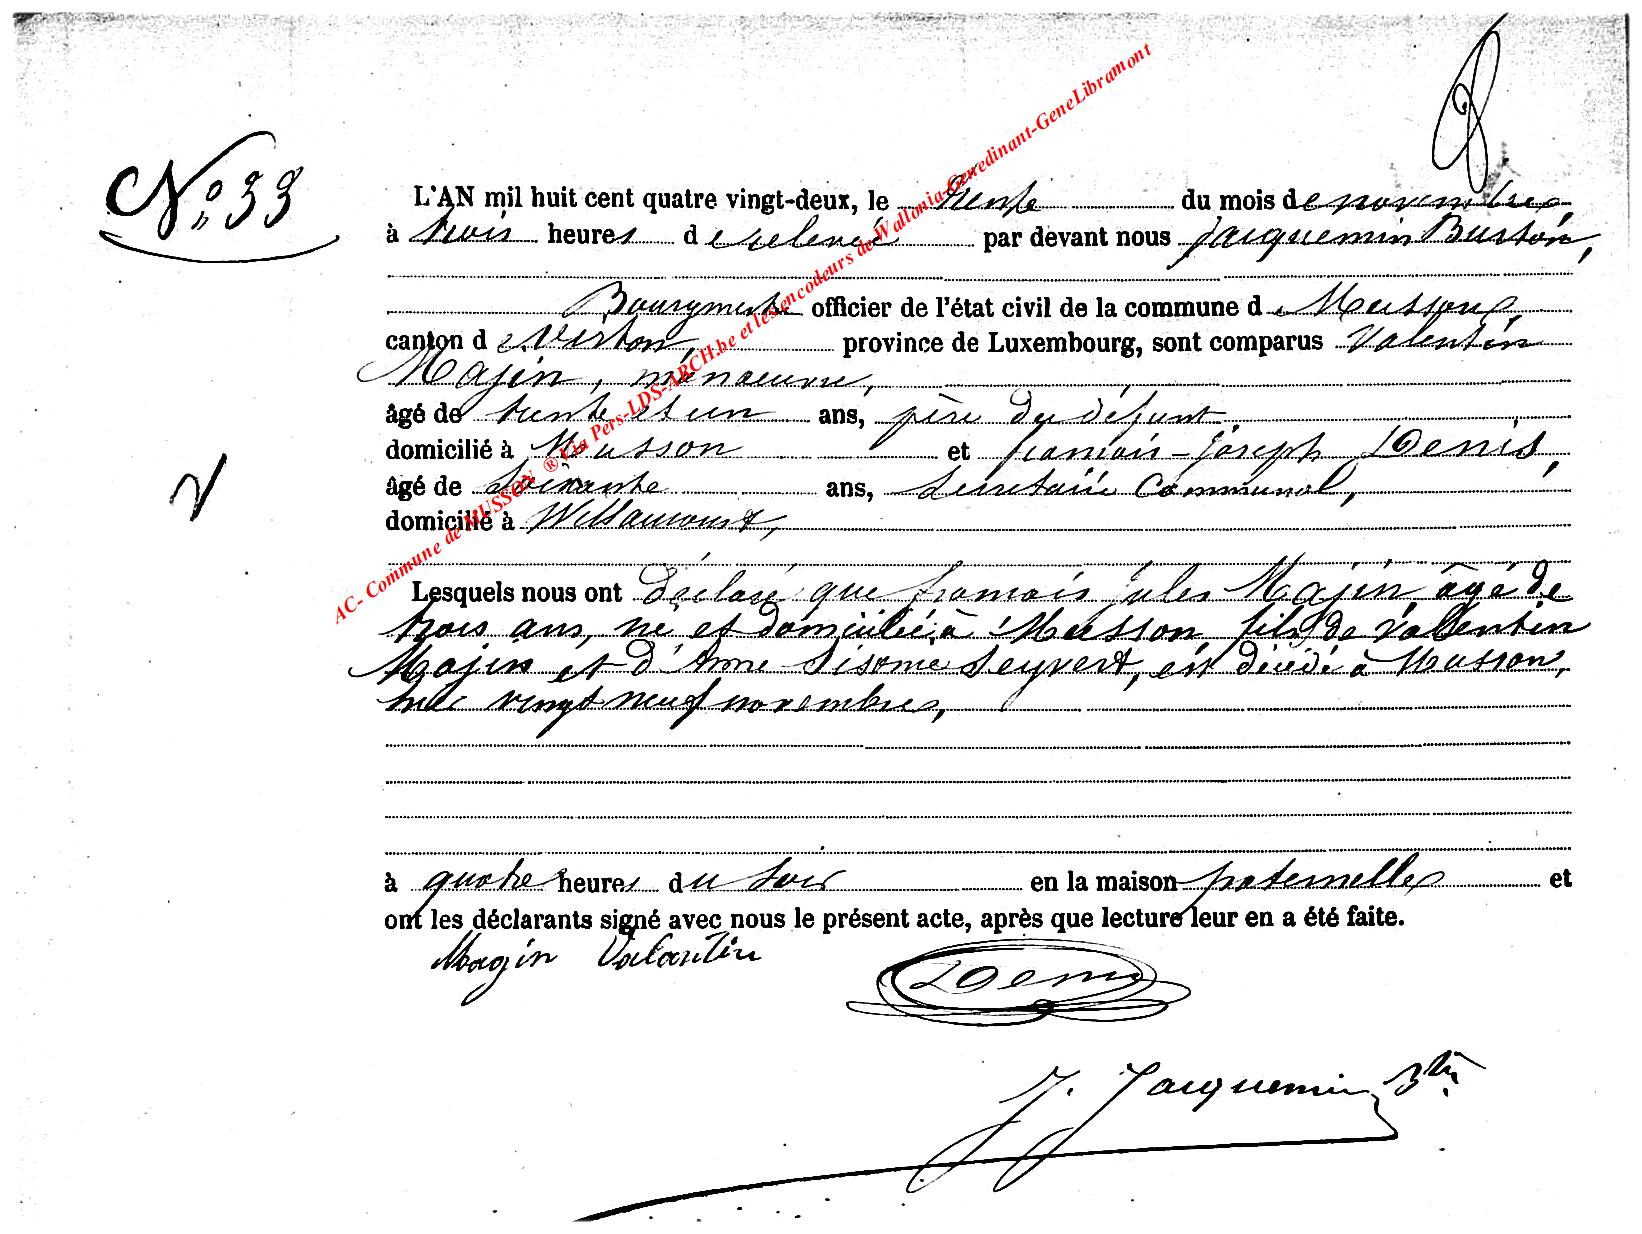 N° 33
L'AN mil huit cent quatre vingt-deux, le trente du mois de novembre
à trois heures de relevée par devant nous Jacquemin Burton,
Bourgmestre officier de l'état civil de la commune de Musson,
canton de Virton, province de Luxembourg, sont comparus Valentin
Majin, manœuvre,
âgé de trente et un ans, père du défunt
domicilié à Musson et françois-joseph Denis,
âgé de soixante ans, Secrétaire Communal,
domicilié à Willancourt,
Lesquels nous ont déclaré que françois jules Majin, âgé de
trois ans, né et domicilié à Musson, fils de Valentin
Majin et d'Anne Seyvert, est décédé à Musson,
vingt neuf novembre,
à quatre heures du soir en la maison paternelle et
ont les déclarants signé avec nous le présent acte, après que lecture leur en a été faite.
Magin Valantin
Denis
J. Jacquemin Btn
AC- Commune de MUSSON ® Via Pers-LDS-ARCH.be et les encodeurs de Wallonia-Genedinant-GeneLibramont